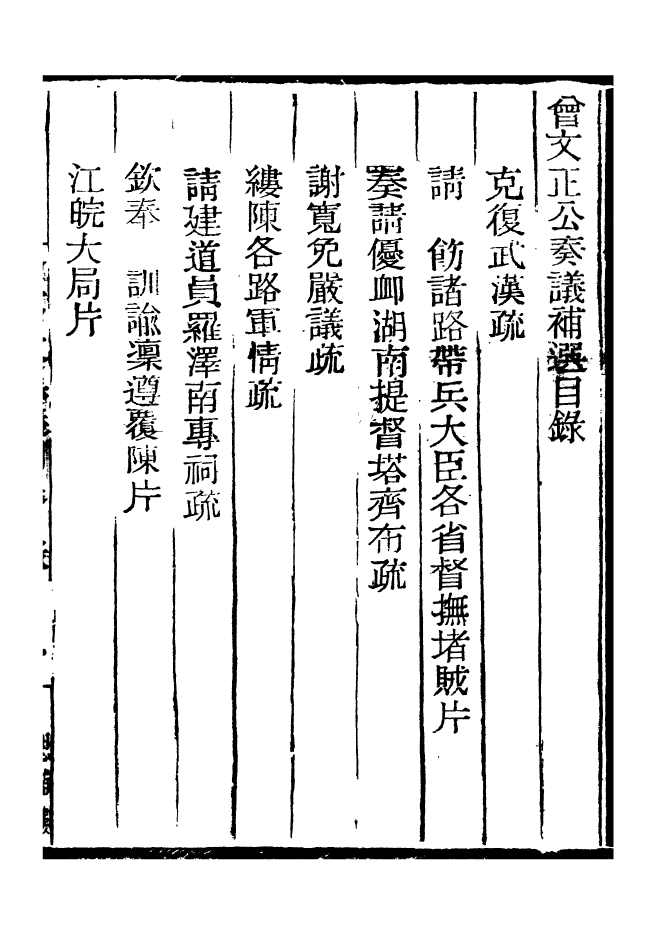 曾文正公奏議補選目錄
克復武漢疏
請　飭諸路帶兵大臣各省督撫堵賊片
奏請優卹湖南提督塔齊布疏
謝寬免嚴議疏
縷陳各路軍情疏
請建道員羅澤南專祠疏
欽奉　訓諭凜遵覆陳片
江皖大局片